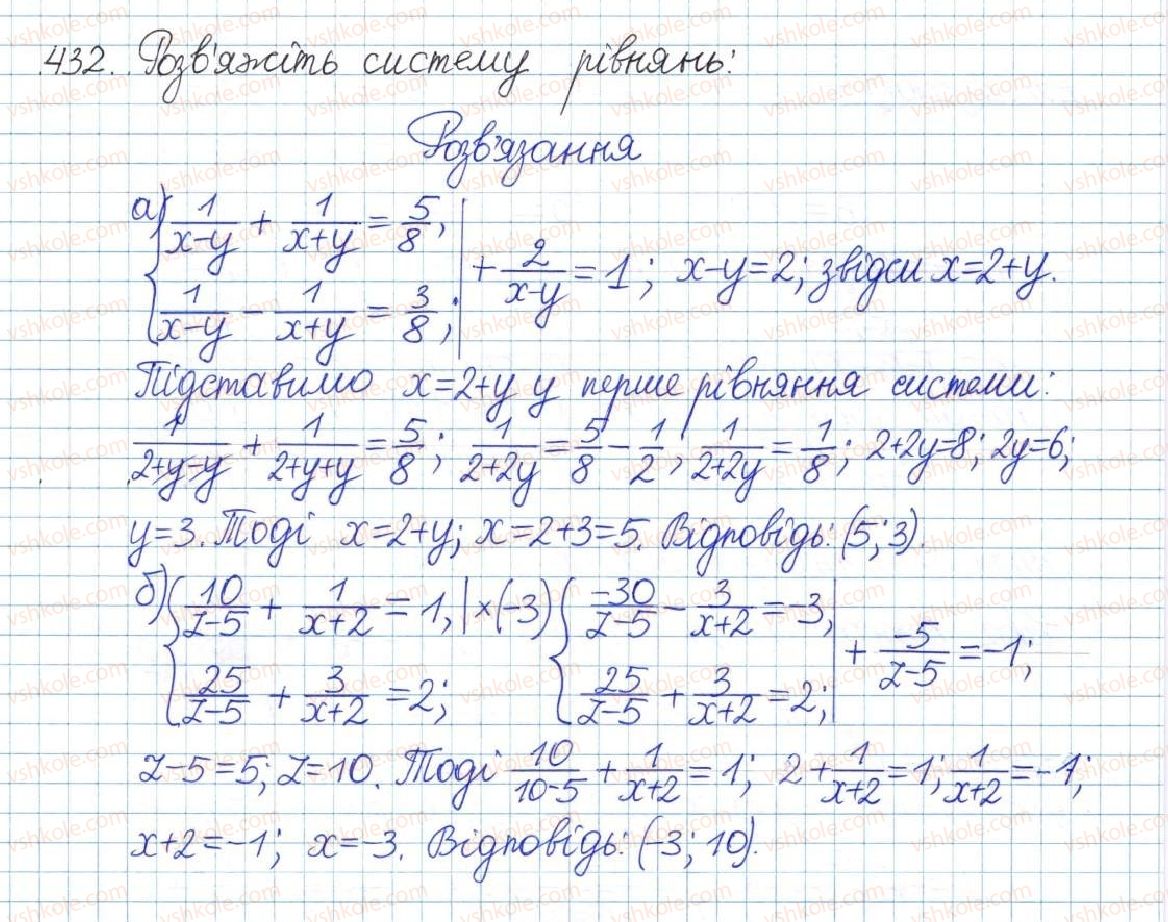 432. Розв'яжіть систему рівнянь:
Розв'язання
а) { 1/(x-y) + 1/(x+y) = 5/8, | + 2/(x-y) = 1; x-y=2; звідси x=2+y.
{ 1/(x-y) - 1/(x+y) = 3/8; |
Підставимо x=2+y у перше рівняння системи:
1/(2+y-y) + 1/(2+y+y) = 5/8; 1/(2+2y) = 5/8 - 1/2; 1/(2+2y) = 1/8; 2+2y=8; 2y=6;
y=3. Тоді x=2+y; x=2+3=5. Відповідь: (5; 3).
б) { 10/(z-5) + 1/(x+2) = 1, | ×(-3) { -30/(z-5) - 3/(x+2) = -3, | + -5/(z-5) = -1;
{ 25/(z-5) + 3/(x+2) = 2; { 25/(z-5) + 3/(x+2) = 2; |
z-5=5; z=10. Тоді 10/(10-5) + 1/(x+2) = 1; 2 + 1/(x+2) = 1; 1/(x+2) = -1;
x+2=-1; x=-3. Відповідь: (-3; 10).
vshkole.com